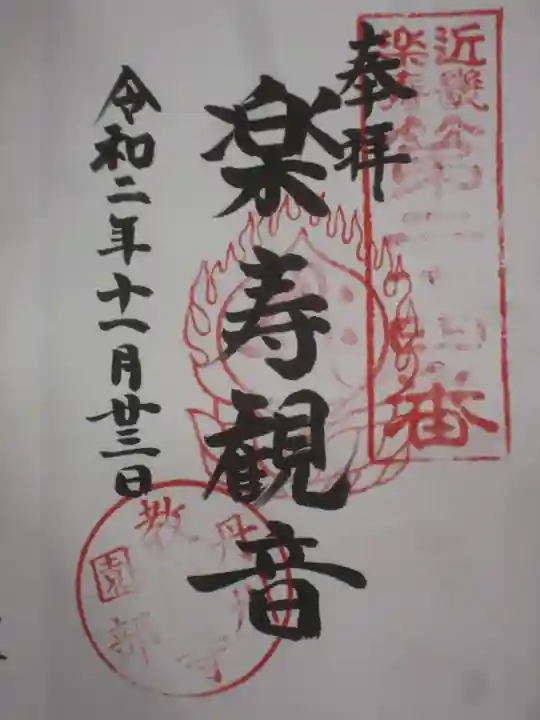 近畿
楽寿
第二十四番
奉拝
楽寿観音
令和二年十一月廿三日
丹
教
寺
園部